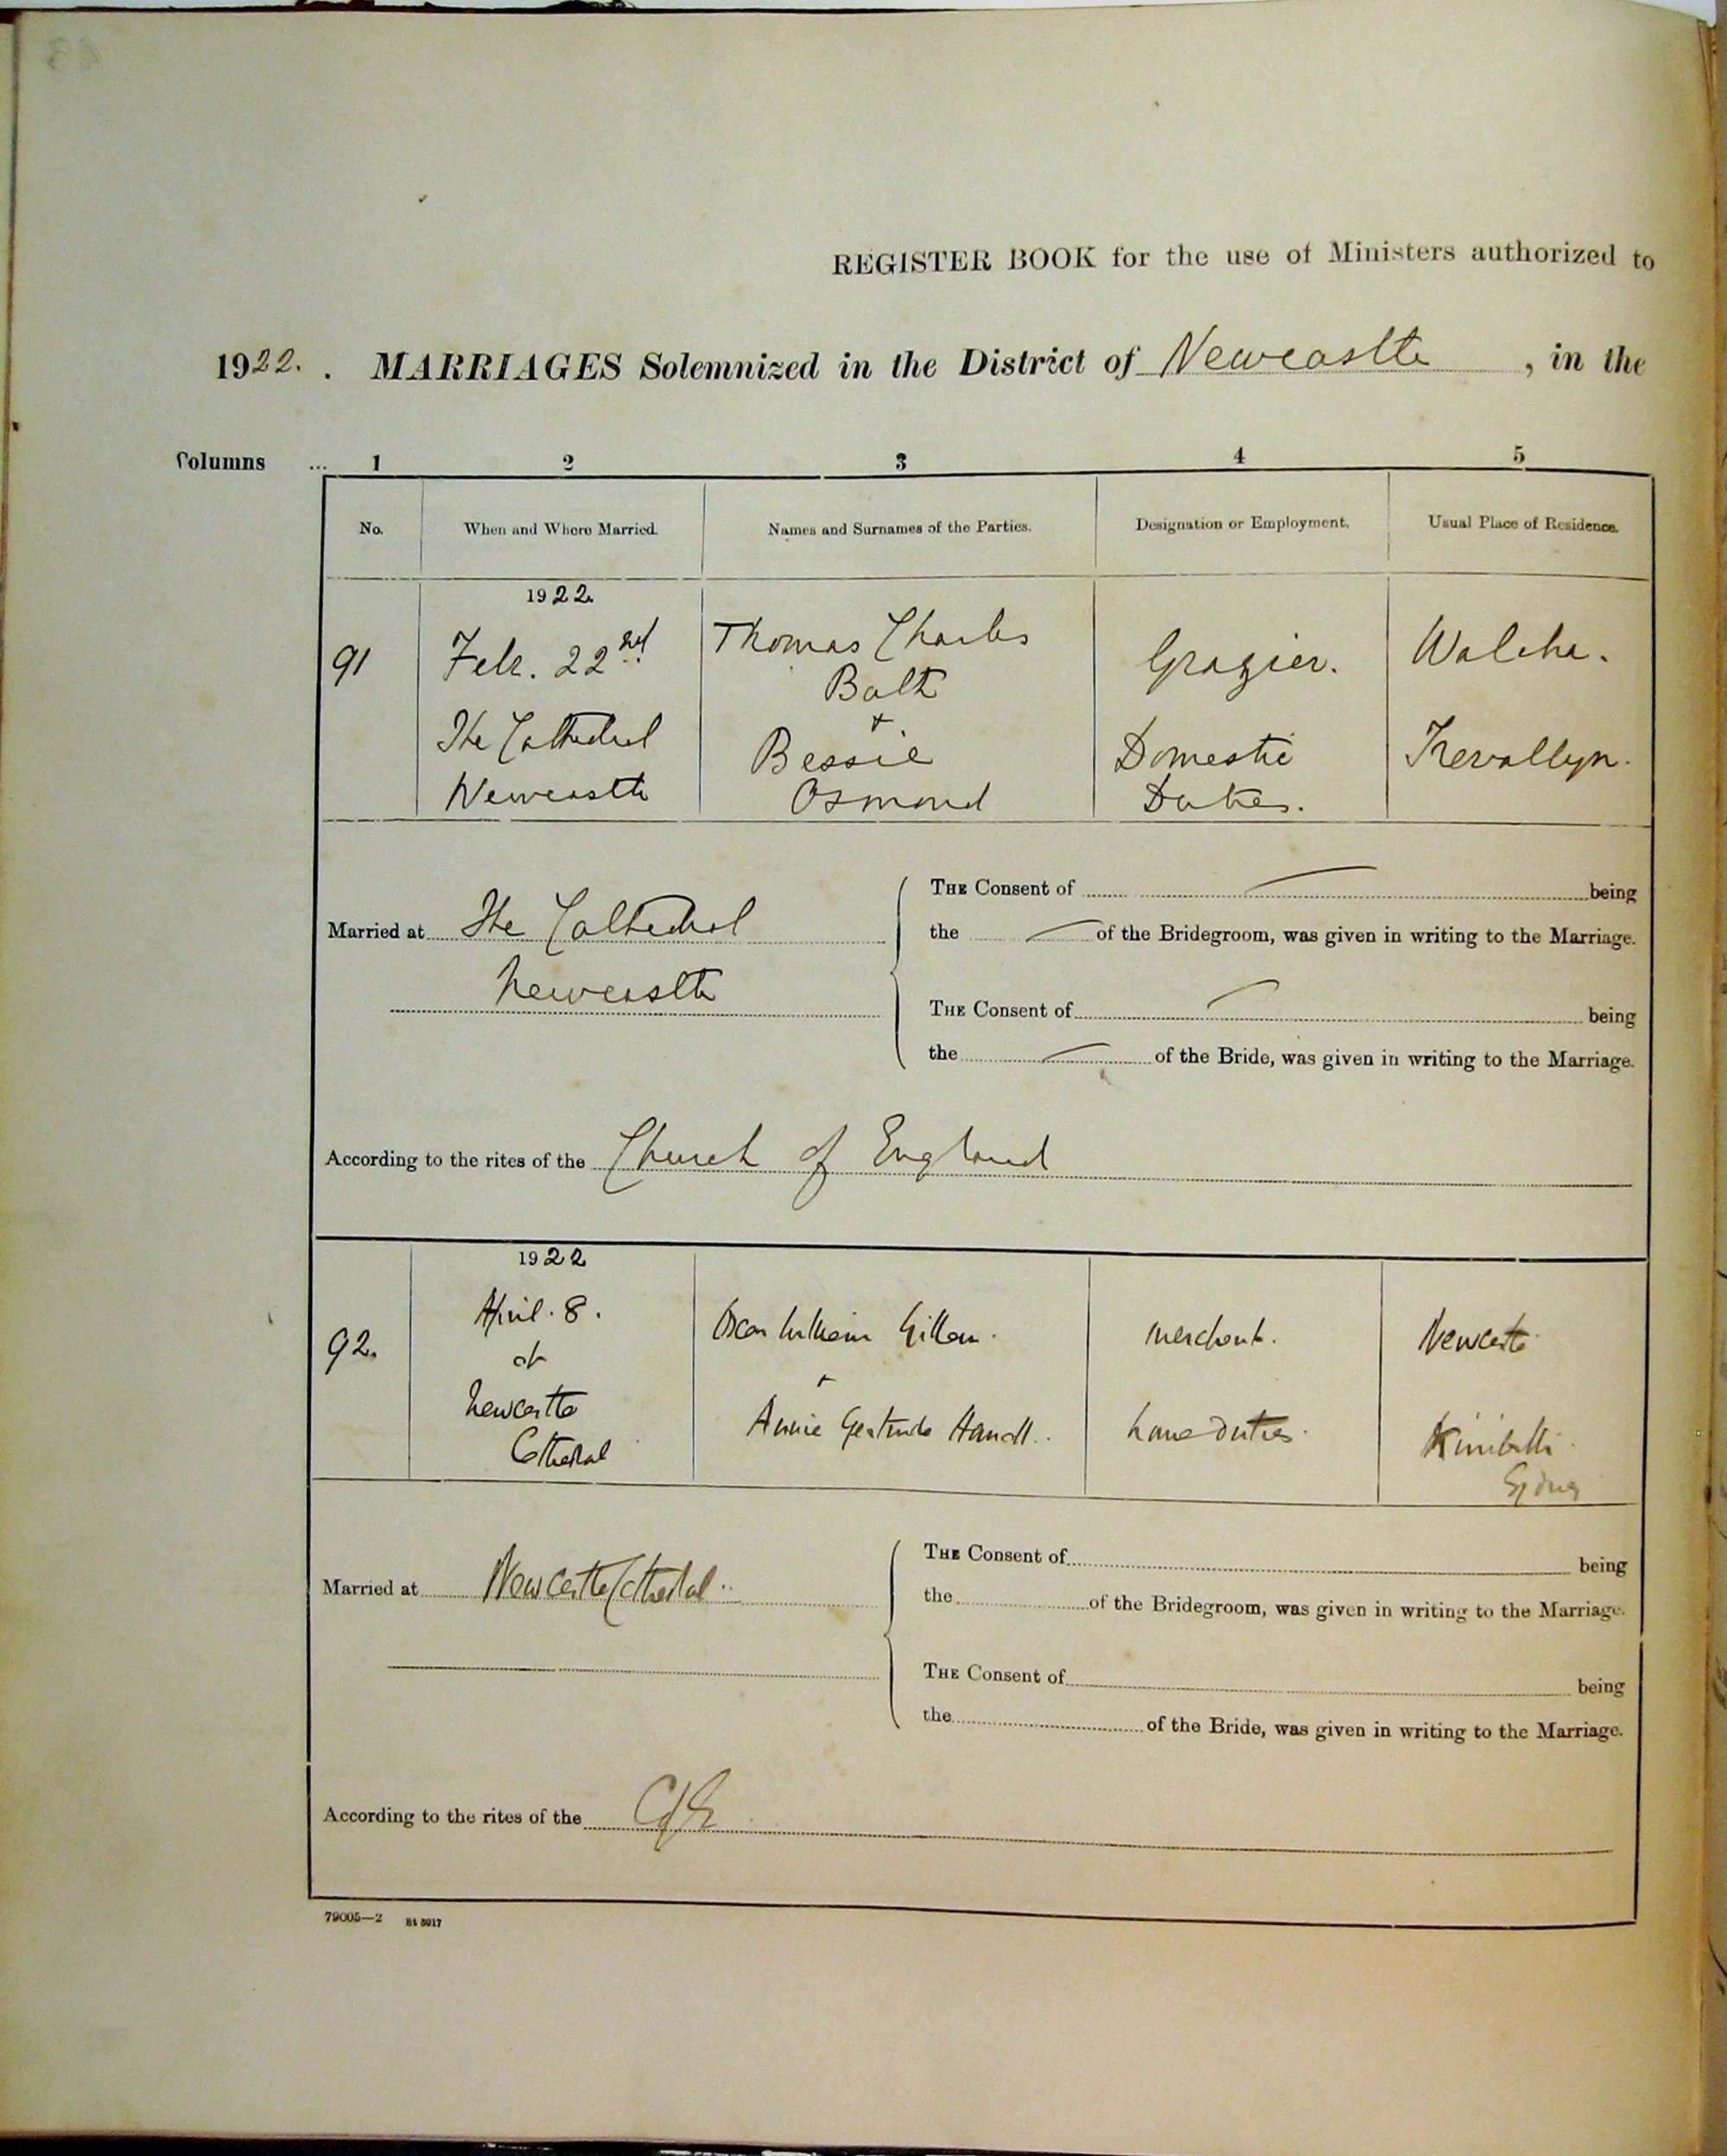 REGISTER BOOK for the use of Ministers authorized to
1922. . MARRIAGES Solemnized in the District of Newcastle , in the
Columns ... 1 2 3 4 5
No. When and Where Married. Names and Surnames of the Parties. Designation or Employment. Usual Place of Residence.
1922.
91 Feb. 22nd Thomas Charles Grazier. Walcha.
Bath
The Cathedral + Domestic Trevallyn.
Newcastle Bessie Duties.
Osmond
Married at The Cathedral
Newcastle
THE Consent of being
the of the Bridegroom, was given in writing to the Marriage.
THE Consent of being
the of the Bride, was given in writing to the Marriage.
According to the rites of the Church of England
1922
92. April. 8. Oscar William merchant. Newcastle
at +
Newcastle Annie Gertrude home duties.
Cathedral
Married at Newcastle Cathedral
THE Consent of being
the of the Bridegroom, was given in writing to the Marriage.
THE Consent of being
the of the Bride, was given in writing to the Marriage.
According to the rites of the C of E
79005—2 St 5917